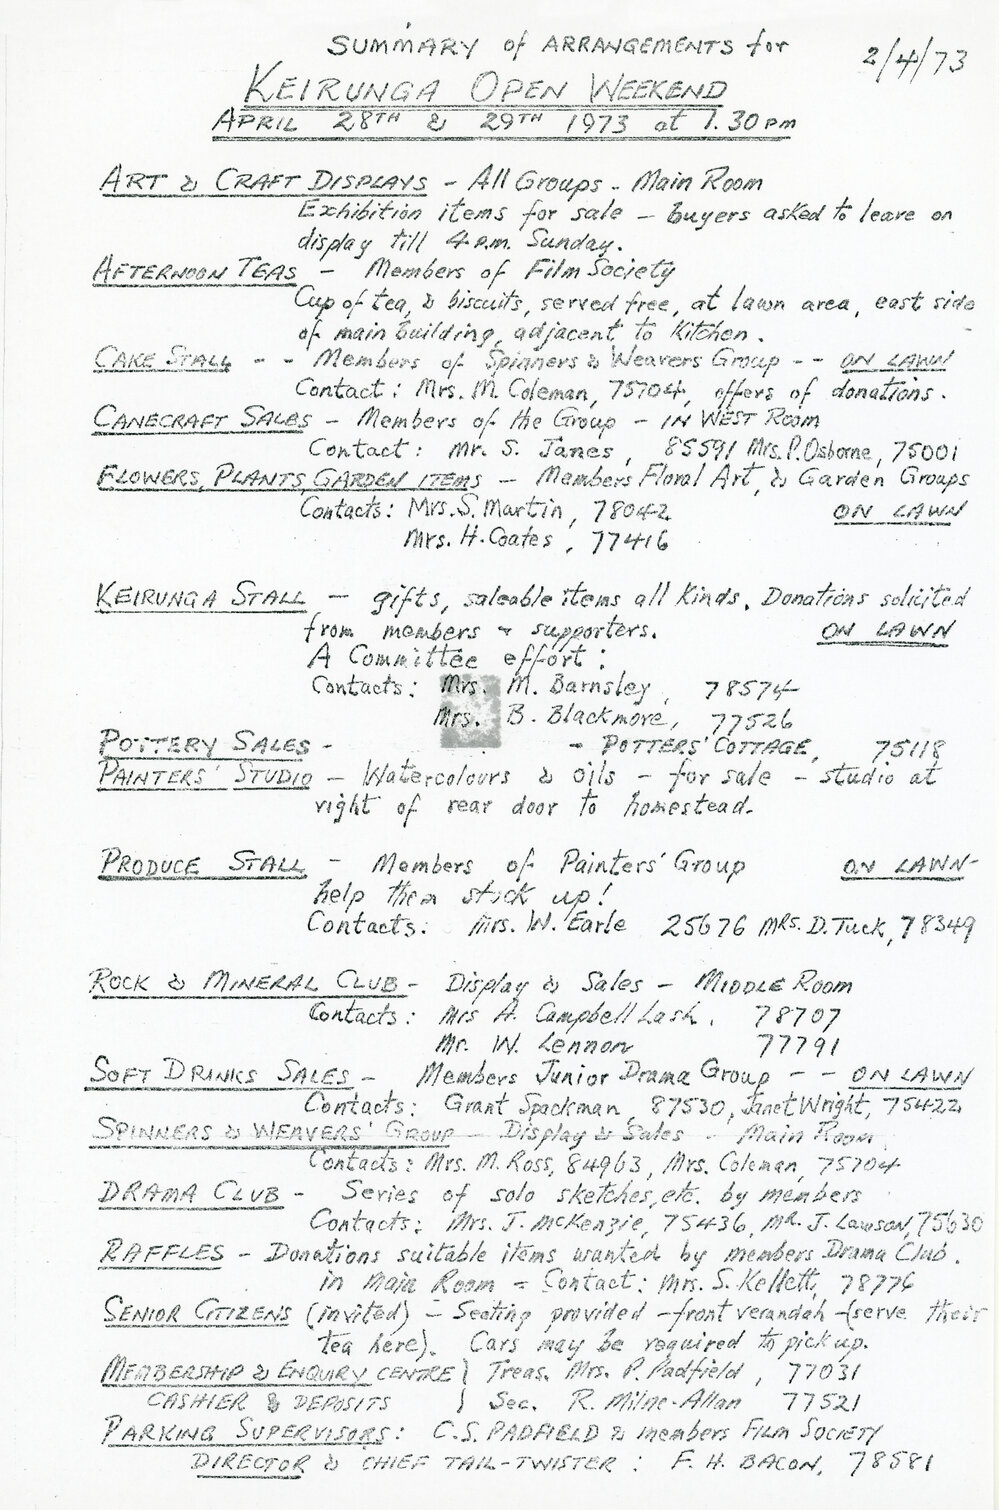 SUMMARY of ARRANGEMENTS for
2/4/73
KEIRUNGA OPEN WEEKEND
APRIL 28TH & 29TH 1973 at 1.30 PM
ART & CRAFT DISPLAYS - All Groups - Main Room
Exhibition items for sale - buyers asked to leave on
display till 4 p.m. Sunday.
AFTERNOON TEAS - Members of Film Society
Cup of tea, & biscuits, served free, at lawn area, east side
of main building, adjacent to Kitchen.
CAKE STALL - - Members of Spinners & Weavers Group - - ON LAWN
Contact: Mrs. M. Coleman, 75704, offers of donations.
CANECRAFT SALES - Members of the Group - IN WEST ROOM
Contact: Mr. S. Janes, 85591 Mrs. P. Osborne, 75001
FLOWERS, PLANTS, GARDEN ITEMS - Members Floral Art, & Garden Groups
Contacts: Mrs. S. Martin, 78042 ON LAWN
Mrs. H. Coates, 77416
KEIRUNGA STALL - gifts, saleable items all kinds. Donations solicited
from members & supporters. ON LAWN
A Committee effort:
Contacts: Mrs. M. Barnsley, 78574
Mrs. B. Blackmore, 77526
POTTERY SALES - - POTTERS' COTTAGE, 75118
PAINTERS' STUDIO - Watercolours & oils - for sale - studio at
right of rear door to homestead.
PRODUCE STALL - Members of Painters' Group ON LAWN -
help them stock up!
Contacts: Mrs. W. Earle 25676 MRS. D. Tuck, 78349
ROCK & MINERAL CLUB - Display & Sales - MIDDLE ROOM
Contacts: Mrs A. Campbell Lash. 78707
Mr. W. Lennon 77791
SOFT DRINKS SALES - Members Junior Drama Group - - ON LAWN
Contacts: Grant Spackman, 87530, Janet Wright, 75422
SPINNERS & WEAVERS' GROUP - Display & Sales - Main Room
Contacts: Mrs. M. Ross, 84963, Mrs. Coleman, 75704
DRAMA CLUB - Series of solo sketches, etc. by members
Contacts: Mrs. J. McKenzie, 75436, MR. J. Lawson, 75630
RAFFLES - Donations suitable items wanted by members Drama Club.
in Main Room - Contact: Mrs. S. Kellett, 78776
SENIOR CITIZENS (invited) - Seating provided - front verandah - (serve their
tea here). Cars may be required to pick up.
MEMBERSHIP & ENQUIRY CENTRE } Treas. Mrs. P. Padfield, 77031
CASHIER & DEPOSITS } Sec. R. Milne-Allan 77521
PARKING SUPERVISORS: C.S. PADFIELD & members FILM SOCIETY
DIRECTOR & CHIEF TAIL-TWISTER: F. H. BACON, 78581